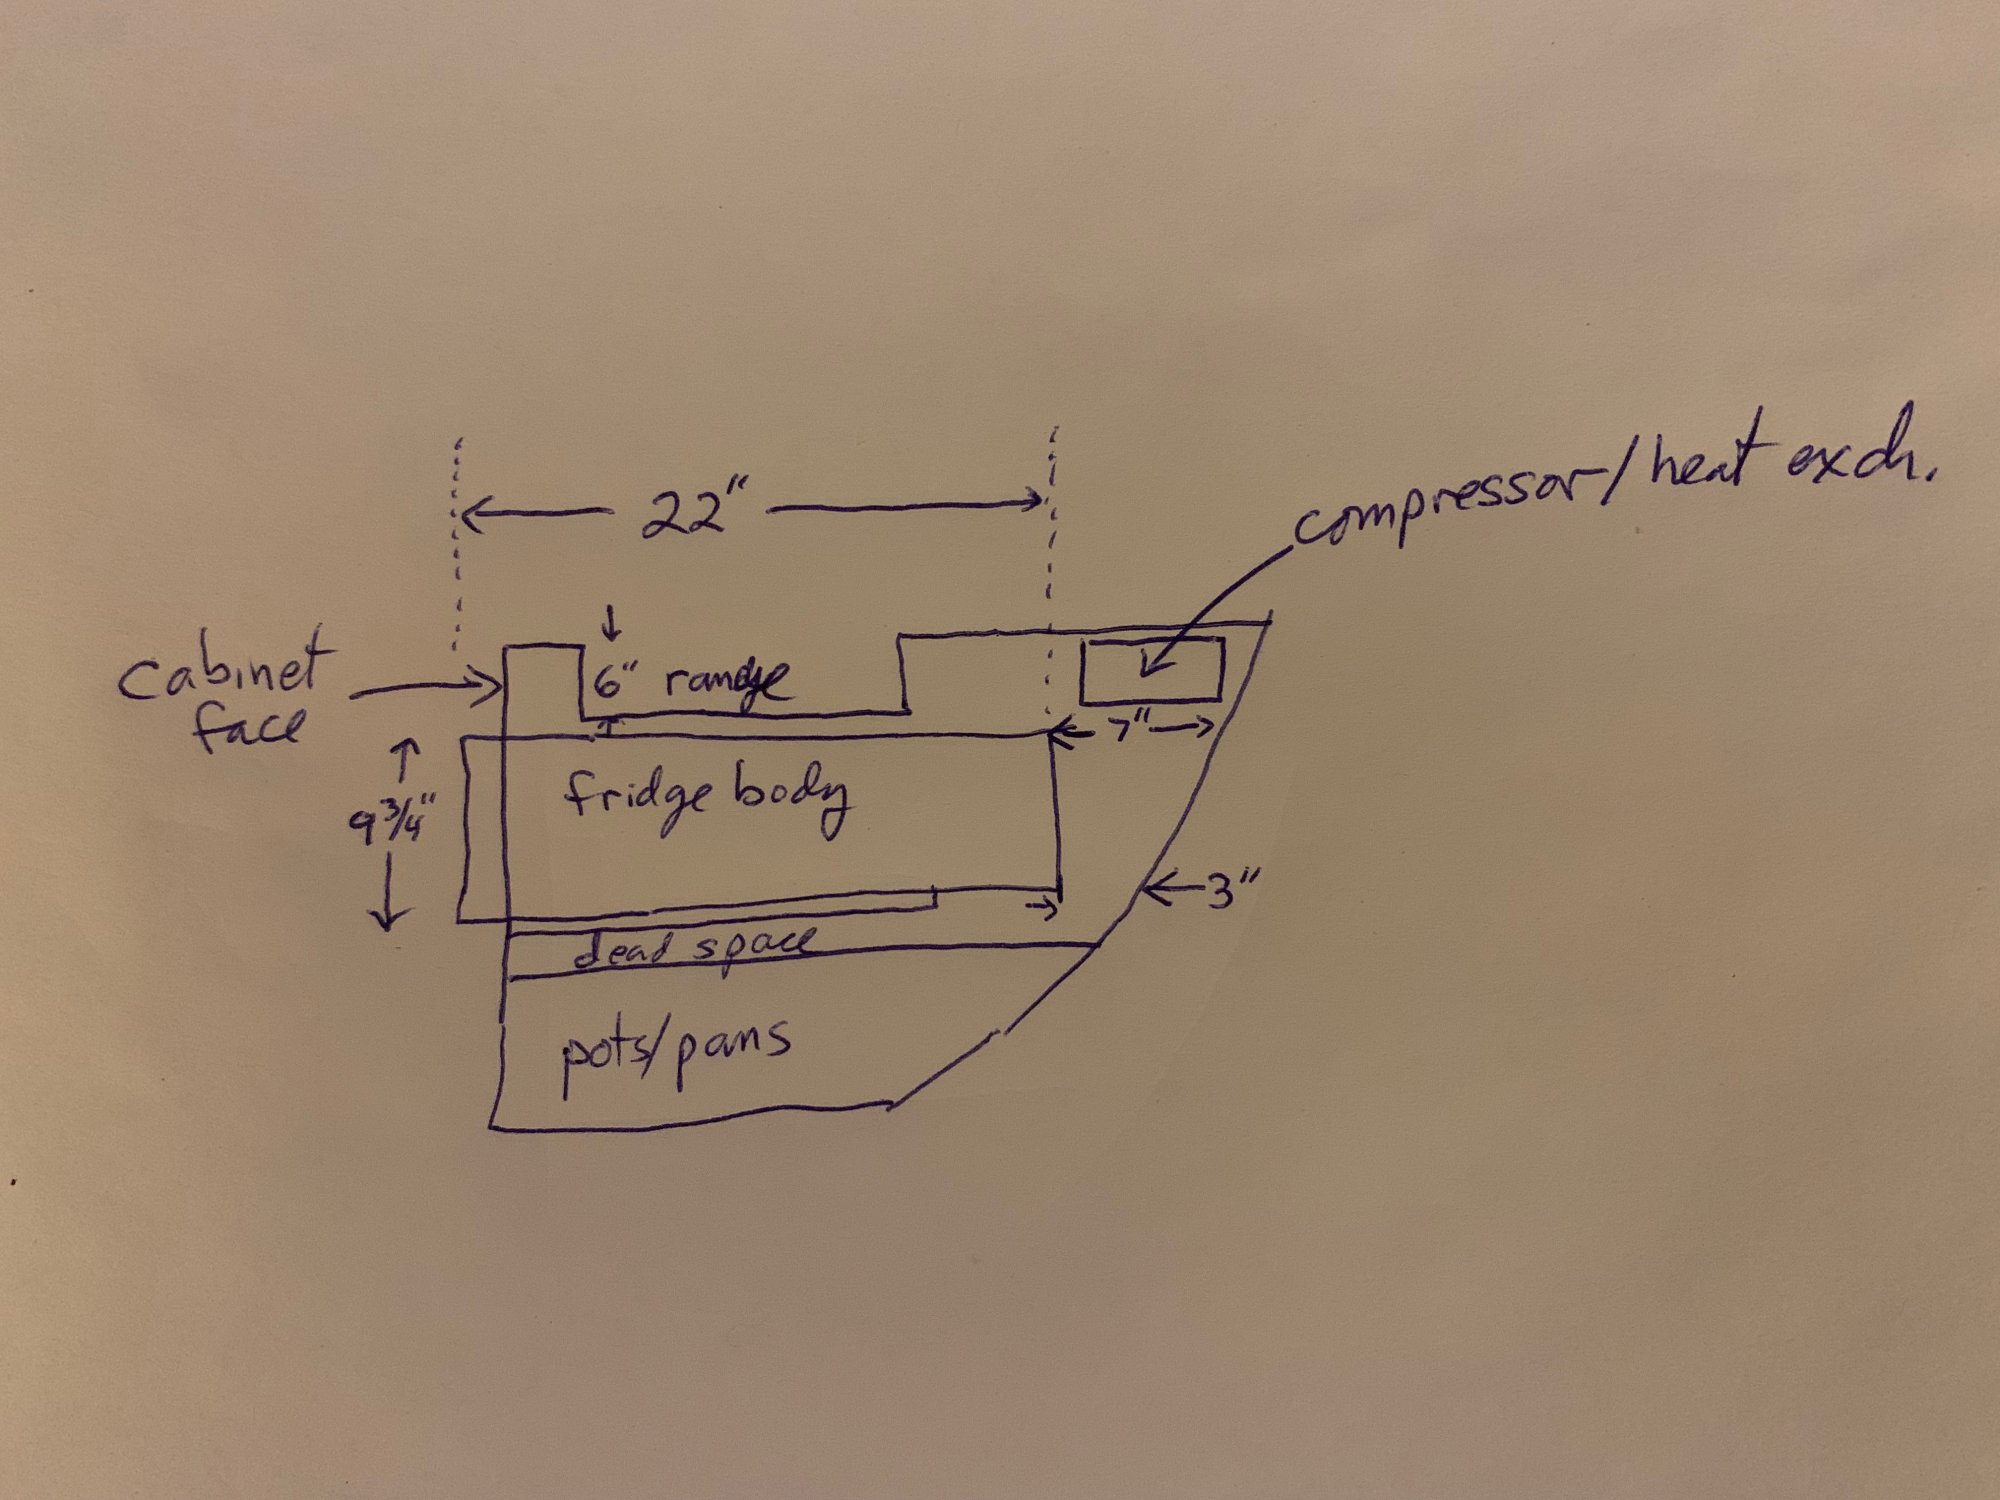 22"
compressor/heat exch.
Cabinet
face
6" range
7"
9 3/4"
fridge body
3"
dead space
pots/pans